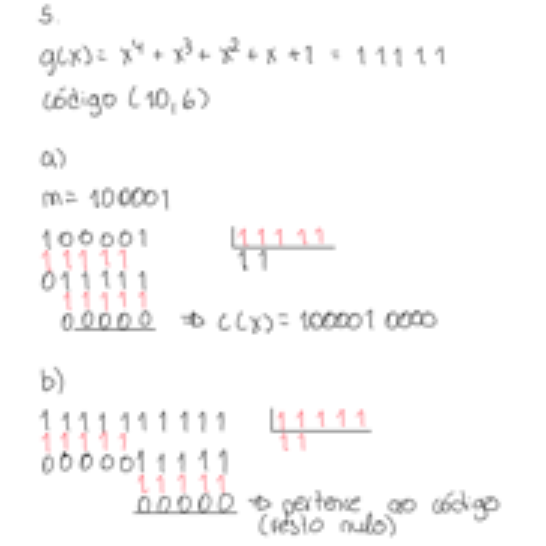 5.
g(x) = x⁴ + x³ + x² + x + 1 = 1 1 1 1 1
código (10,6)
a)
m = 100001
1 0 0 0 0 1 | 1 1 1 1 1
1 1 1 1 1 1 1
0 1 1 1 1 1
1 1 1 1 1
0 0 0 0 0 ⇒ c(x) = 100001 0000
b)
1 1 1 1 1 1 1 1 1 1 | 1 1 1 1 1
1 1 1 1 1 1 1
0 0 0 0 0 1 1 1 1 1
1 1 1 1 1
0 0 0 0 0 ⇒ pertence ao código
(resto nulo)